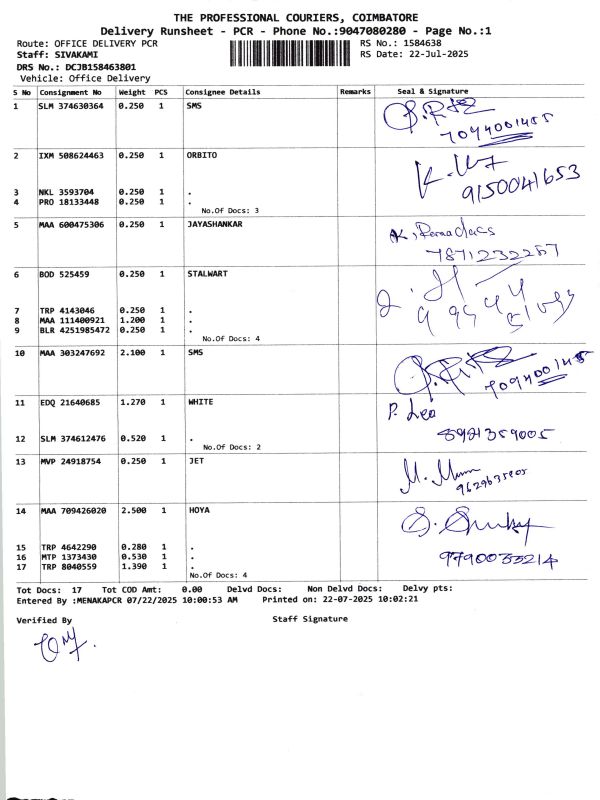 THE PROFESSIONAL COURIERS, COIMBATORE
Delivery Runsheet - PCR - Phone No.:9047080280 - Page No.:1
Route: OFFICE DELIVERY PCR RS No.: 1584638
Staff: SIVAKAMI RS Date: 22-Jul-2025
DRS No.: DCJB158463801
Vehicle: Office Delivery
S No Consignment No Weight PCS Consignee Details Remarks Seal & Signature
1 SLM 374630364 0.250 1 SMS
2 IXM 508624463 0.250 1 ORBITO
9150041653
3 NKL 3593704 0.250 1 .
4 PRO 18133448 0.250 1 .
No.Of Docs: 3
5 MAA 600475306 0.250 1 JAYASHANKAR
7871232257
6 BOD 525459 0.250 1 STALWART
7 TRP 4143046 0.250 1 .
8 MAA 111400921 1.200 1 .
9 BLR 4251985472 0.250 1 .
No.Of Docs: 4
10 MAA 303247692 2.100 1 SMS
11 EDQ 21640685 1.270 1 WHITE P. Leo
12 SLM 374612476 0.520 1 .
No.Of Docs: 2
13 MVP 24918754 0.250 1 JET
14 MAA 709426020 2.500 1 HOYA
15 TRP 4642290 0.280 1 .
16 MTP 1373430 0.530 1 .
17 TRP 8040559 1.390 1 .
No.Of Docs: 4
Tot Docs: 17 Tot COD Amt: 0.00 Delvd Docs: Non Delvd Docs: Delvy pts:
Entered By :MENAKAPCR 07/22/2025 10:00:53 AM Printed on: 22-07-2025 10:02:21
Verified By Staff Signature